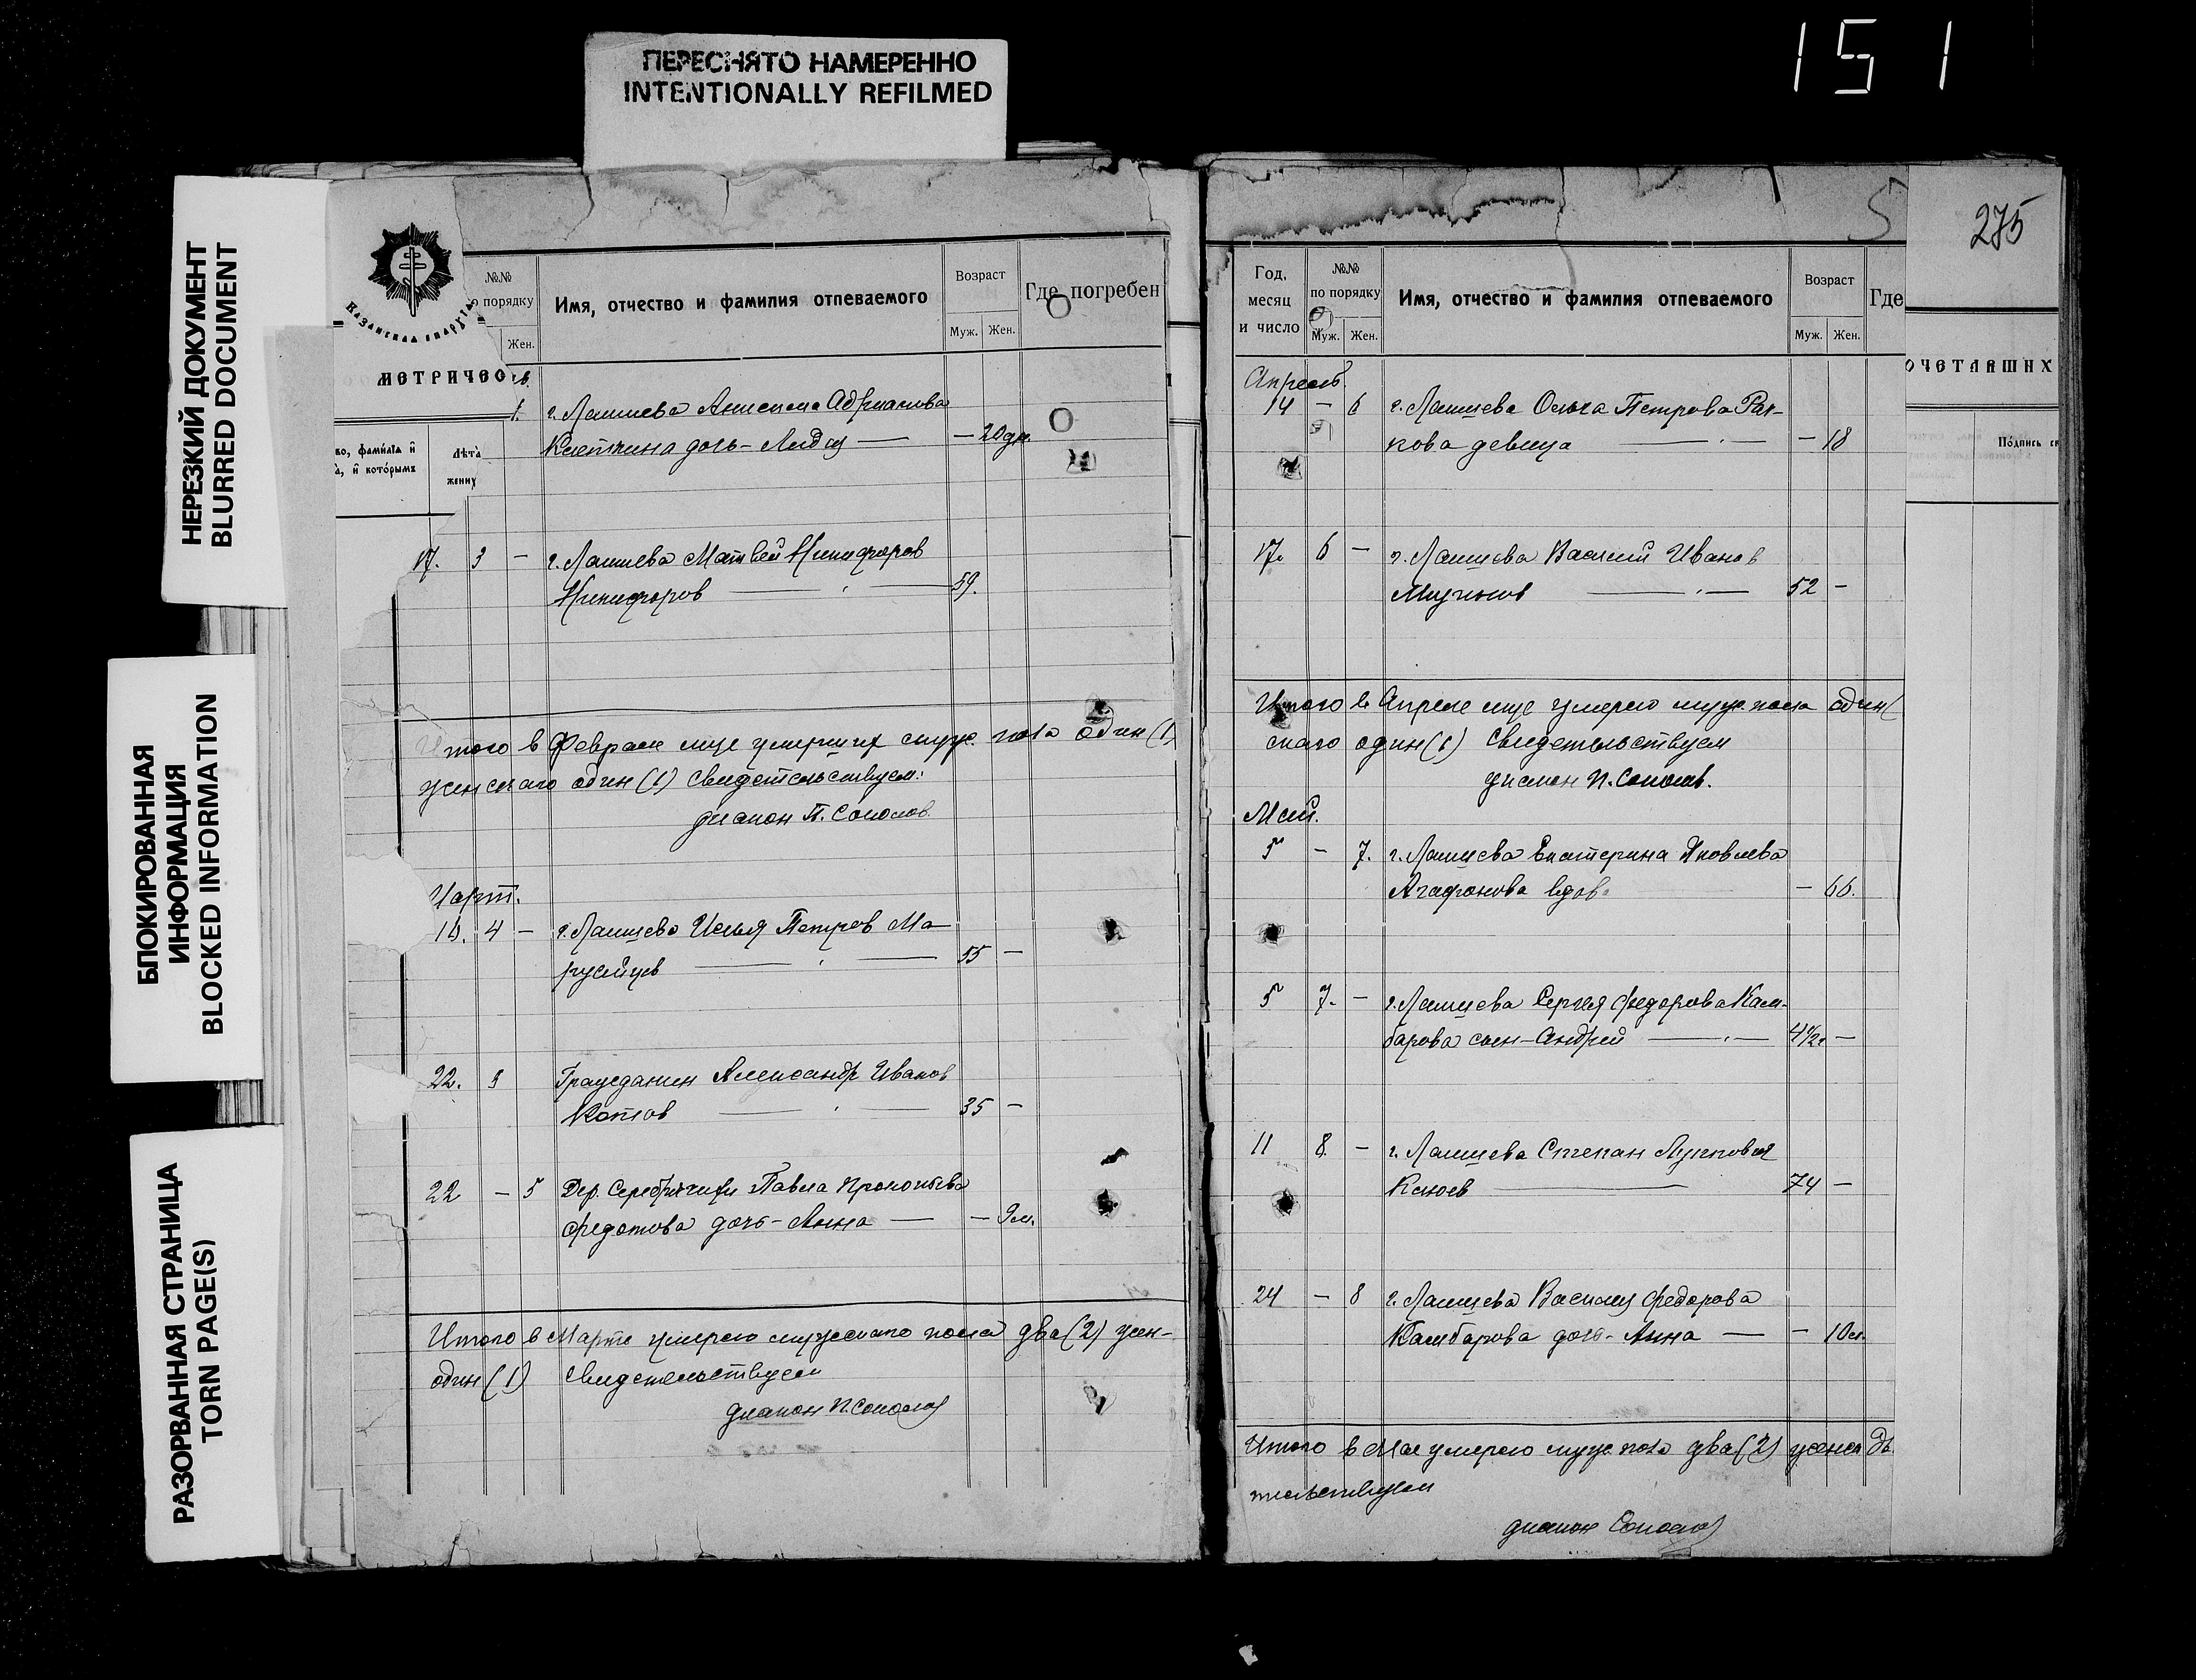 151
ПЕРЕСНЯТО НАМЕРЕННО
INTENTIONALLY REFILMED
НЕРЕЗКИЙ ДОКУМЕНТ
BLURRED DOCUMENT
БЛОКИРОВАННАЯ
ИНФОРМАЦИЯ
BLOCKED INFORMATION
РАЗОРВАННАЯ СТРАНИЦА
TORN PAGE(S)
КАЗАНСКАЯ ЕПАРХІЯ
МЕТРИЧЕС
во, фамилія и
а, и которымъ
Лѣта
жениху
№№ о порядку Имя, отчество и фамилия отпеваемого Возраст Где погребен
Жен. Муж. Жен.
1. г. Лаишева Адрианова
дочь - Лидия — — 20 дн.
17. 3 — г. Лаишева Матвей Никифоров
Никифоров — 59.
Итого в Феврале еще умерших муж. пола один (1)
женскаго один (1) Свидетельствуем:
диакон П. Соколов.
Март.
4 — г. Лаишева Илья Петров Ма-
55 —
22. 3 Гражданин Александр Иванов
Котов — 35 —
22 — 5 Дер. Павла Прокопьева
Федотова дочь - Анна — — 9 м.
Итого в Марте умерло мужскаго пола два (2) жен-
один (1) Свидетельствуем
диакон П. Соколов
5
275
Год, месяц и число №№ по порядку Имя, отчество и фамилия отпеваемого Возраст Где
Муж. Жен. Муж. Жен.
Апрель.
14 — 6 г. Лаишева Ольга Петрова Рач-
кова девица — — 18
17. 6 — г. Лаишева Василий Иванов
52 —
Итого в Апреле еще умерло муж. пола один (
скаго один (1) Свидетельствуем
диакон П. Соколов.
Май.
5 — 7. г. Лаишева Екатерина Яковлева
Агафонова вдова — 66.
5 7. — г. Лаишева Сергея Федорова Кам-
барова сын - Андрей — 4½ —
11 8. — г. Лаишева Степан
Клюев — 74 —
24 — 8 г. Лаишева Василия Федорова
Камбарова дочь - Анна — — 10 м.
Итого в Мае умерло муж. пола два (2) женск дв
тельствуем
диакон Соколов
ОЧЕТАВШИХ
Подпись св